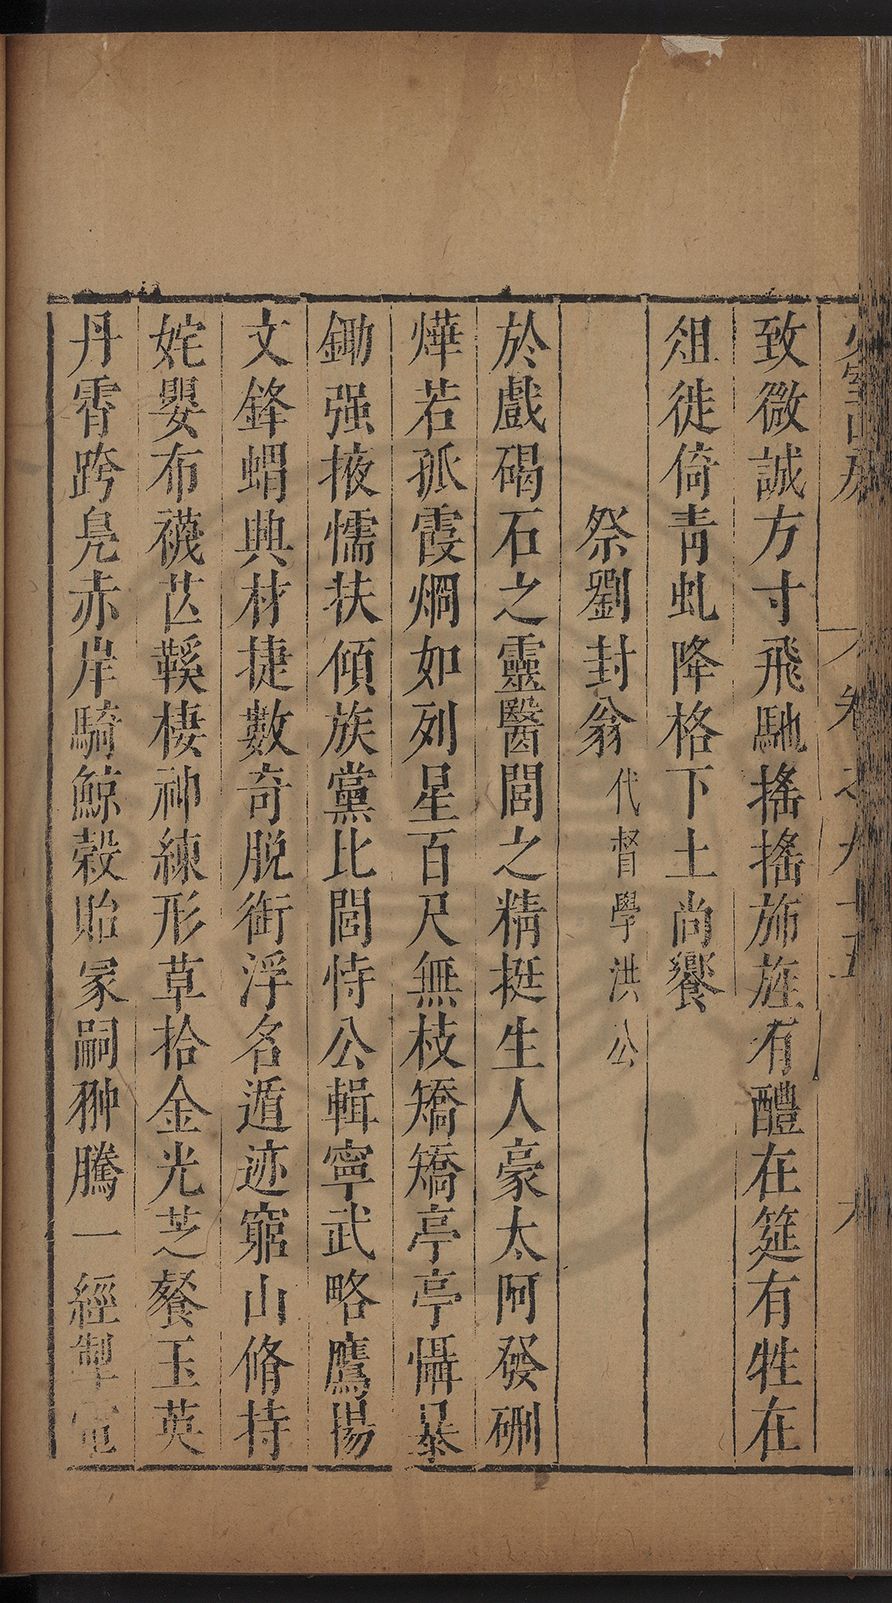 少室山房 卷之九十五 九
致微誠方寸飛馳搖搖斾旌有醴在筵有牲在
俎徙倚青虬降格下土尚饗
祭劉封翁代督學洪公
於戲碣石之靈醫閭之精挺生人豪太阿發硎
燁若孤霞烱如列星百尺無枝矯矯亭亭懾暴
鋤强掖懦扶傾族黨比閭恃公輯寧武略鷹揚
文鋒蝟興材捷數奇脱銜浮名遁迹窮山脩持
姹嬰布襪芒鞵棲神練形草拾金光芝餐玉英
丹霄跨鳧赤岸騎鯨榖貽冢嗣翀騰一經掣電